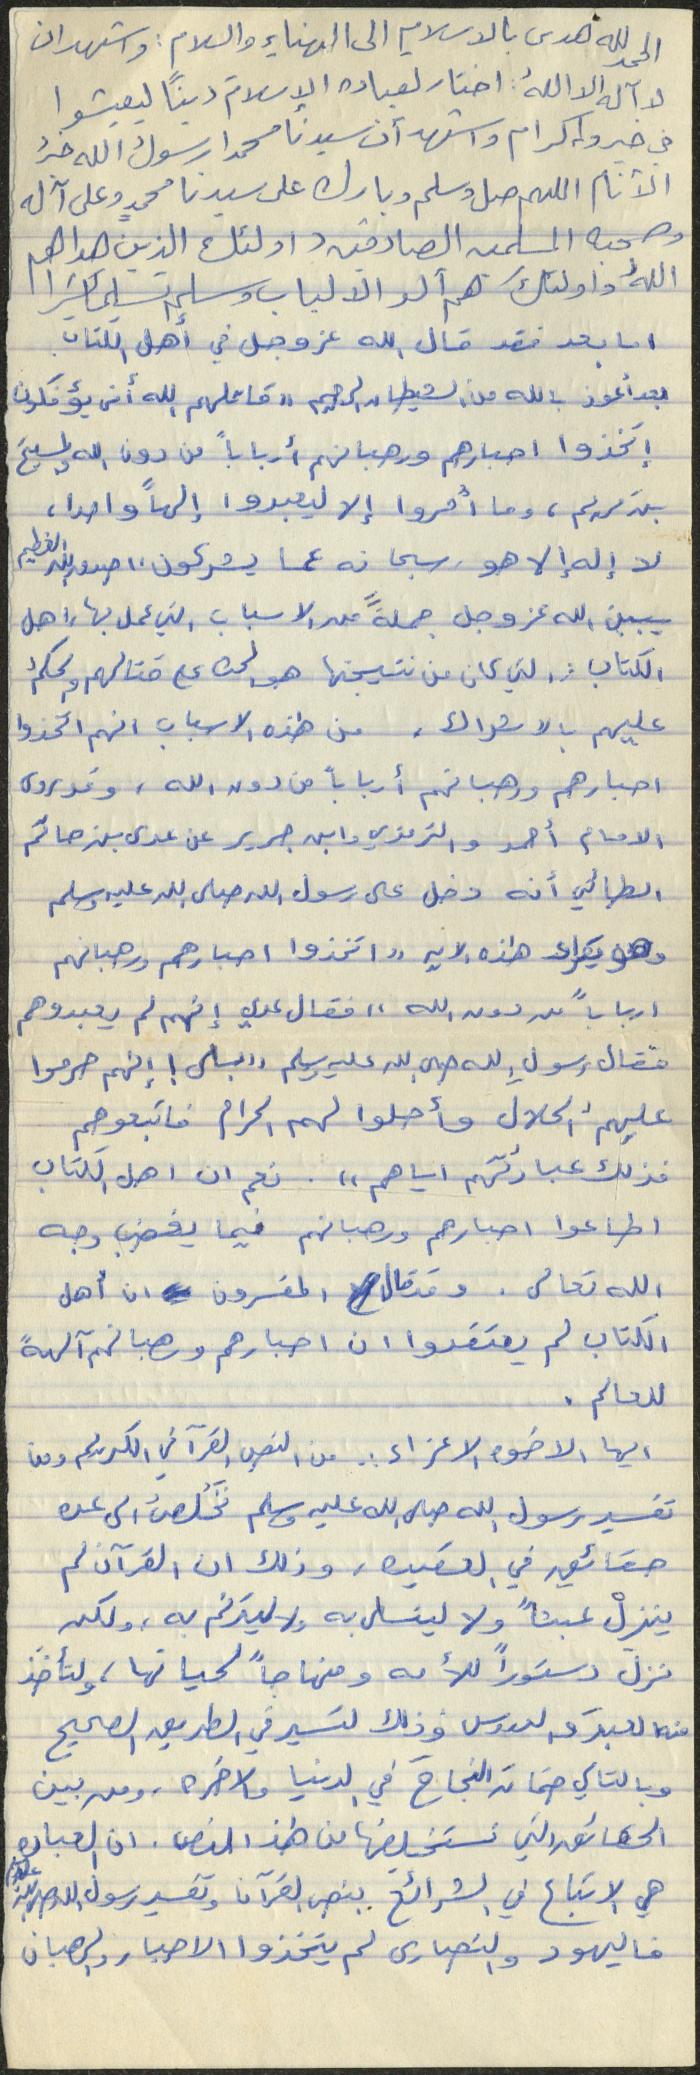 الحمد لله هدى بالاسلام الى الهناء والسلام : واشهد ان
لا آله الا اللهُ : اختار لعباده الإسلام ديناً ليعيشوا
في خير واكرام واشهد أن سيدنا محمدا رسول الله خيرُ
الأنام اللهم صل وسلم وبارك على سيدنا محمدٍ وعلى آله
وصحبه المسلمين الصادقين » اولئك الذين هداهم
اللهُ واولئك هم آلو الالباب وسلم تسليماً كثيرا
اما بعد فقد قال الله عز وجل في أهل الكتاب
بعد أعوذ بالله من الشيطان الرجيم " قاتلهم الله أنى يؤفكون
إتخذوا احبارهم ورهبانهم أرباباً من دون الله والمسيحَ
بن مريم ، وما أُمروا إلا ليعبدوا إلهاً واحدا ،
لا إله إلا هو ، سبحانه عما يشركون " صدق الله العظيم
يبين الله عز وجل جملةً من الاسباب التي عمل بها اهل
الكتاب : التي كان من نتيجتها هو الحث على قتالهم والحكمُ
عليهم بالاشراك ، من هذه الاسباب انهم اتخذوا
احبارهم ورهبانهم أرباباً من دون الله ، وقد روى
الامام أحمد والترمذي وابن جرير عن عدى بن حاتم
الطائي أنه دخل على رسول الله صلى الله عليه وسلم
وهو يقراء هذه الايه " اتخذوا احبارهم ورهبانهم
ارباباً من دون الله " فقال عدي إنهم لم يعبدوهم
فقال رسول الله صلى الله عليه وسلم " بلى ! إنهم حرموا
عليهمُ الحلال وأحلوا لهم الحرام فاتبعوهم
فذلك عبادتُهم اياهم " . نعم ان اهل الكتاب
اطاعوا احبارهم ورهبانهم فيما يغضب وجه
الله تعالى . وقد قال المفسرون ان أهل
الكتاب لم يعتقدوا ان احبارهم ورهبانهم آلهةً
للعالم .
ايها الاخوه الاعزاء : من النص القرآني الكريم ومن
تفسير رسول الله صلى الله عليه وسلم نَخْلُصُ الى عدة
حقائق في العقيده ، وذلك ان القرآن لم
ينزلْ عبثاً ولا ليتسلى به ولا ليترنم به ، ولكن
نزل دستوراً للأمه ومنهاجاً لحياتها ، ولتأخُذ
منه العبرَ والدروس وذلك لتسير في الطريق الصحيح
وبالتالي ضمانة النجاحَ في الدنيا والاخره ، ومن بين
الحقائق التي نستخلصها من هذا النص . ان العباده
هي الاتباع في الشرائع بنص القرآن وتفسير رسول الله صلى الله عليه وسلم
فاليهود والنصارى لم يتخذوا الاحبار والرهبان